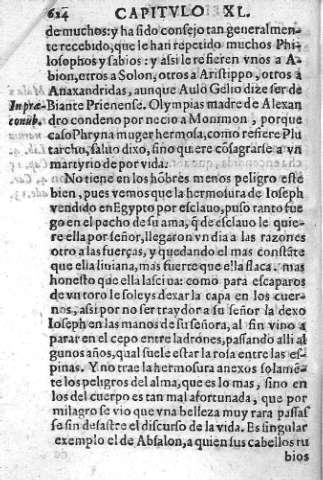 624 CAPITVLO XL.
de muchos: y ha sido consejo tan generalmen-
te recebido, que le han repetido muchos Phi-
losophos y sabios: y assi le refieren vnos a A-
bion, otros a Solon, otros a Aristippo, otros a
Anaxandridas, aunque Aulo Gelio dize ser de
In præ- Biante Prienense. Olympias madre de Alexan
conub. dro condeno por necio a Monimon, porque
caso Phryna muger hermosa, como refiere Plu
tarcho, saluo dixo, sino quiere cõsagrarse a vn
martyrio de por vida.
No tiene en los hõbres menos peligro este
bien, pues vemos que la hermosura de Ioseph
vendido en Egypto por esclauo, puso tanto fue
go en el pecho de su ama, q̃ de esclauo le quie-
re ella por señor, llegaron vn dia a las razones
otro a las fuerças, y quedando el mas constãte
que ella liuiana, mas fuerte que ella flaca, mas
honesto que ella lasciua: como para escaparos
de vn toro le soleys dexar la capa en los cuer-
nos, assi por no ser traydor a su señor la dexo
Ioseph en las manos de su señora, al fin vino a
parar en el cepo entre ladrones, passando alli al
gunos años, qual suele estar la rosa entre las es-
pinas. Y no trae la hermosura anexos solamẽ-
te los peligros del alma, que es lo mas, sino en
los del cuerpo es tan mal afortunada, que por
milagro se vio que vna belleza muy rara passas
se sin desastre el discurso de la vida. Es singular
exemplo el de Absalon, a quien sus cabellos ru
bios